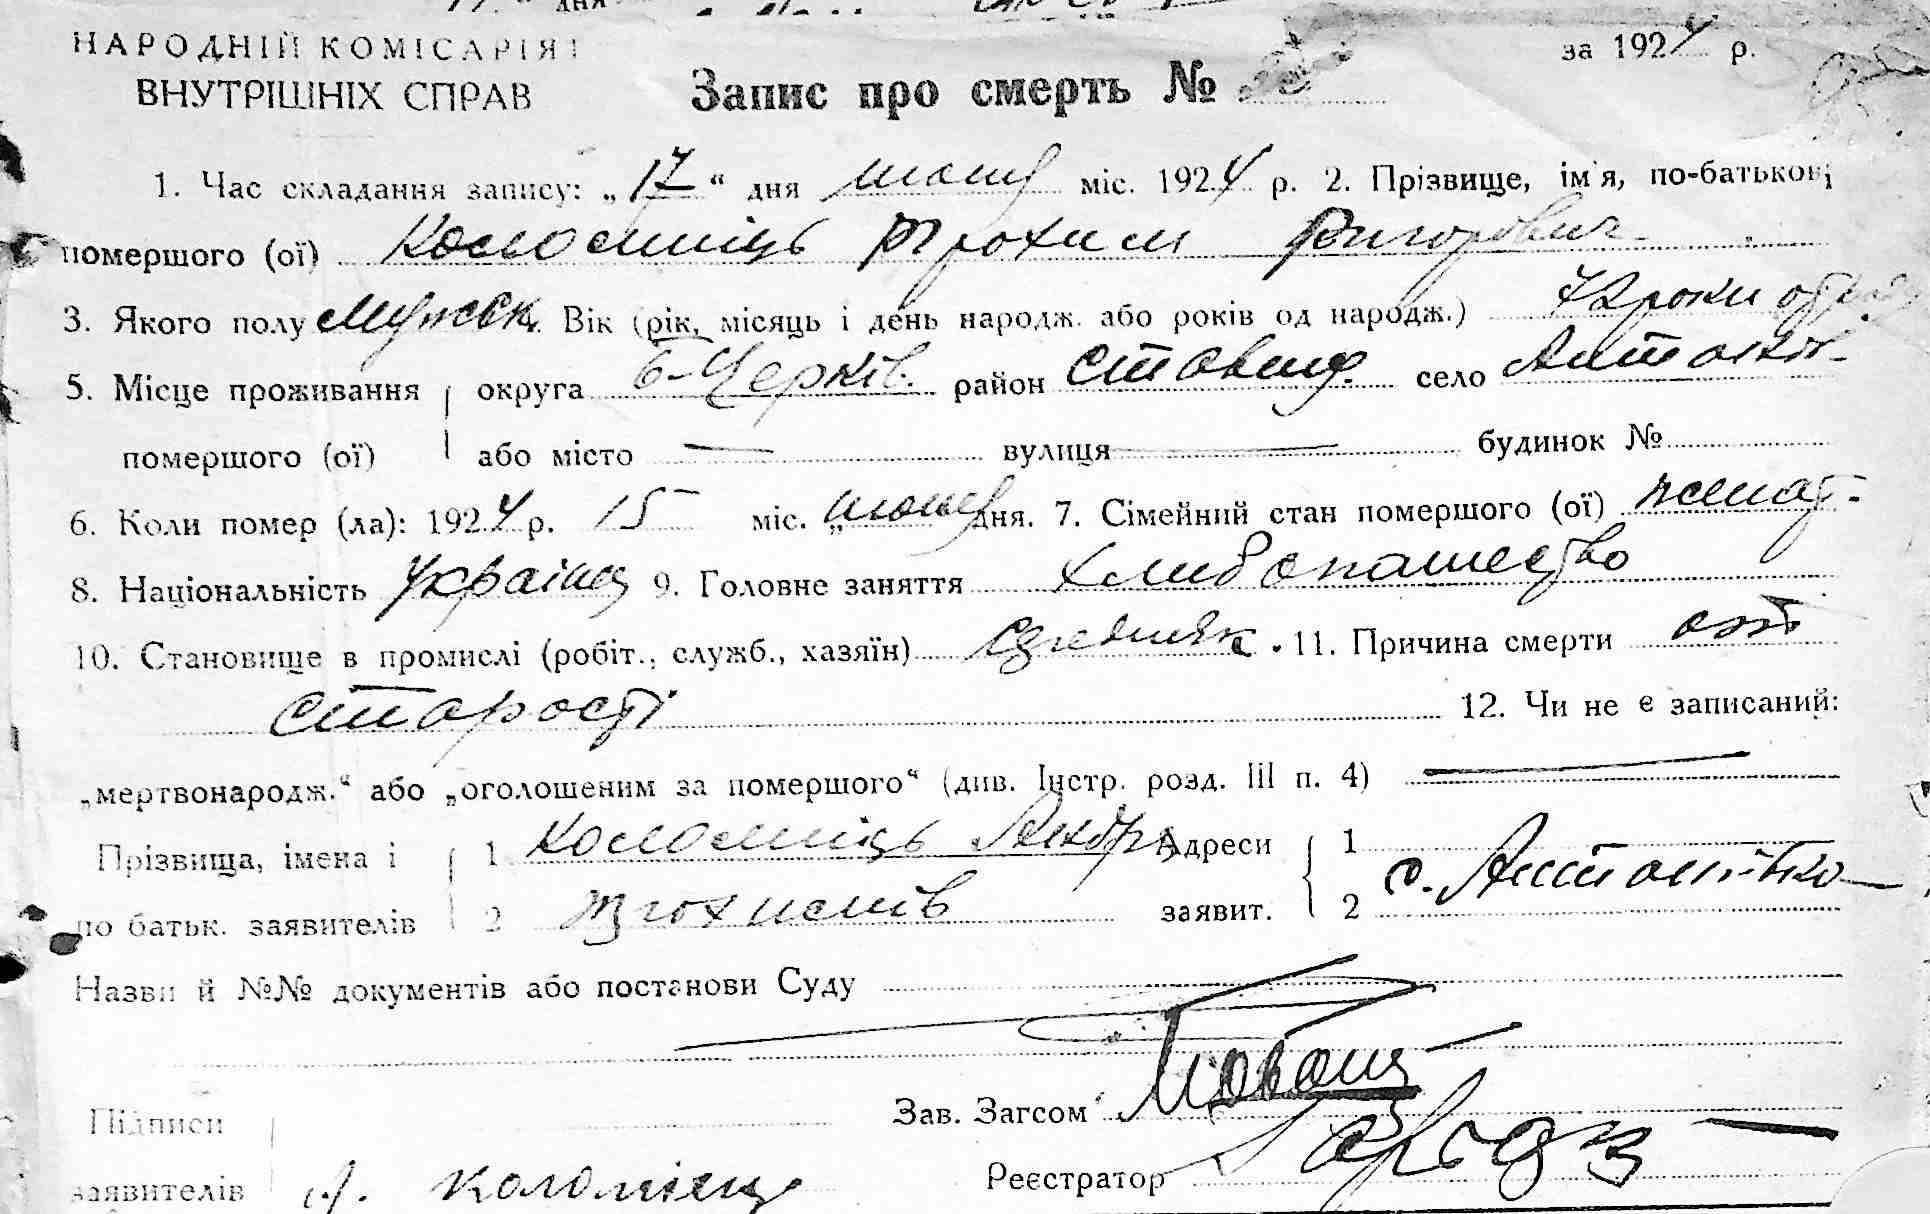 НАРОДНІЙ КОМІСАРІЯТ за 1924 р.
ВНУТРІШНІХ СПРАВ Запис про смерть №
1. Час складання запису: „17“ дня июня міс. 1924 р. 2. Прізвище, ім'я, по-батькові
помершого (ої) Коломиець Трохим Григорович
3. Якого полу Мужск. Вік (рік, місяць і день народж. або років од народж.) 72 роки
5. Місце проживання округа Б-Церків. район Ставищ. село Антонов-
помершого (ої) або місто — вулиця — будинок №
6. Коли помер (ла): 1924 р. 15 міс. „июня“ дня. 7. Сімейний стан помершого (ої) женат-
8. Національність Українец 9. Головне заняття хлибопашество
10. Становище в промислі (робіт., служб., хазяїн) средняк. 11. Причина смерти от
старості 12. Чи не є записаний:
„мертвонародж.“ або „оголошеним за помершого“ (див. Інстр. розд. III п. 4) —
Прізвища, імена і 1 Коломиець Андрј Адреси 1
по батьк. заявителів 2 Трохимів заявит. 2 с. Антонівка
Назви й №№ документів або постанови Суду
Зав. Загсом
Підписи
заявителів А. Коломієць Реєстратор